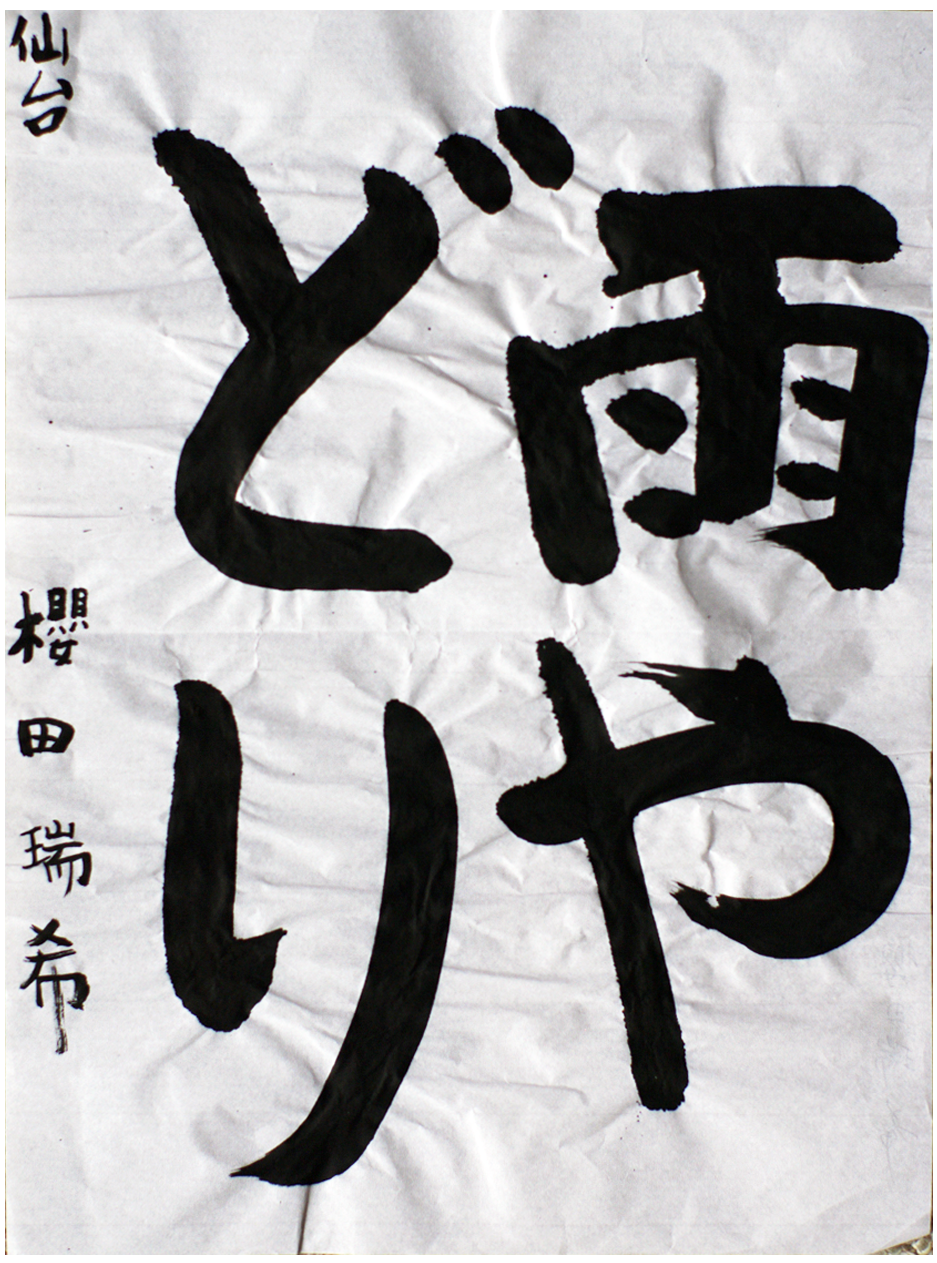 雨や
どり
仙台 櫻田瑞希